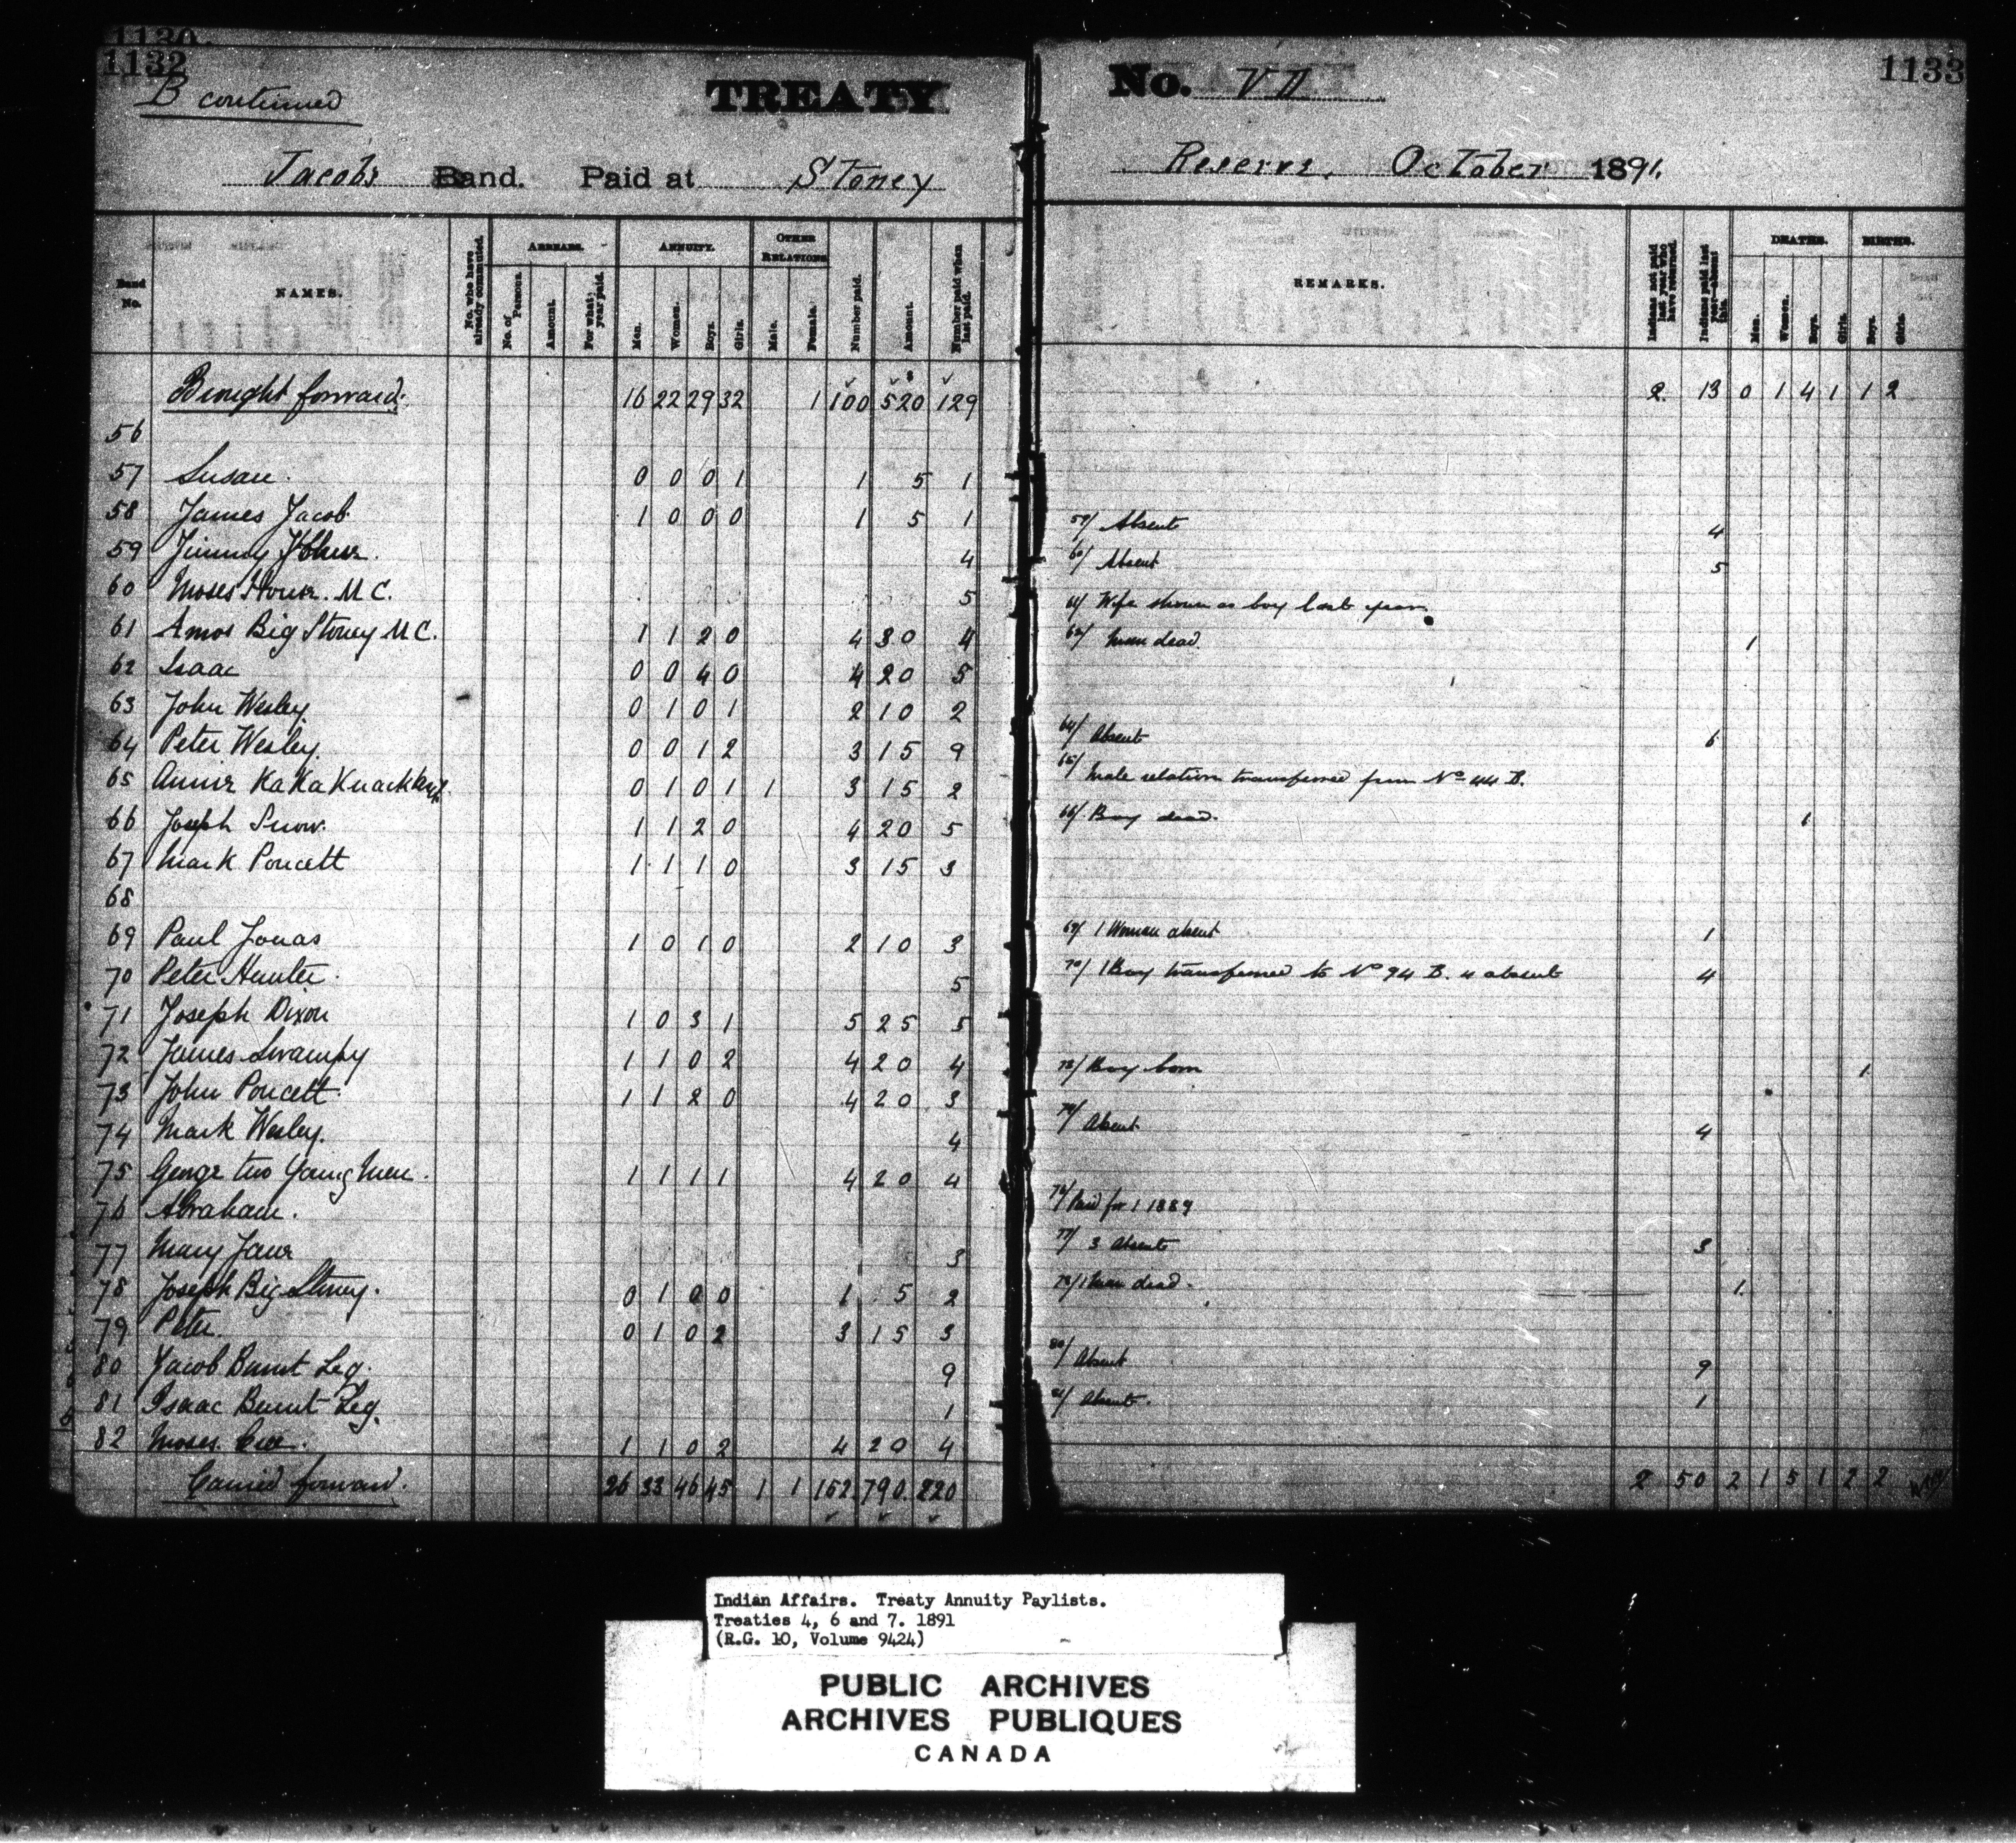 1130
1132
B continued
TREATY
No. VII
1133
Jacob's Band. Paid at Stoney
Reserve. October 1891.
Band No.
NAMES.
No. who have already commuted.
ARREARS.
No. of Persons.
Amount.
For what year paid.
ANNUITY.
Men.
Women.
Boys.
Girls.
OTHER RELATIONS
Male.
Female.
Number paid.
Amount.
Number paid when last paid.
REMARKS.
Indians not paid last year who have returned.
Indians paid last year—absent this.
DEATHS.
Men.
Women.
Boys.
Girls.
BIRTHS.
Boys.
Girls.
Brought forward. 16 22 29 32 1 100 520 129 2 13 0 1 4 1 1 2
56
57 Susan. 0 0 0 1 1 5 1
58 James Jacob 1 0 0 0 1 5 1
59 Jimmy 4 59/ Absent 4
60 Moses House. M C. 5 60/ Absent 5
61 Amos Big Stoney M C. 1 1 2 0 4 30 4 61/ Wife shown as boy last year
62 Isaac 0 0 4 0 4 20 5 62/ Man dead 1
63 John Wesley 0 1 0 1 2 10 2
64 Peter Wesley. 0 0 1 2 3 15 9 64/ Absent 6
65 Annie 0 1 0 1 1 3 15 2 65/ Male relation transferred from No 44 B.
66 Joseph Snow. 1 1 2 0 4 20 5 66/ Boy dead. 1
67 Mark Poucett 1 1 1 0 3 15 3
68
69 Paul Jonas 1 0 1 0 2 10 3 69/ 1 Woman absent 1
70 Peter Hunter. 5 70/ 1 Boy transferred to No 94 B. 4 absent 4
71 Joseph Dixon 1 0 3 1 5 25 5
72 James Swampy 1 1 0 2 4 20 4
73 John Poucett. 1 1 2 0 4 20 3 73/ Boy born 1
74 Mark Wesley. 4 74/ Absent 4
75 George two Young Men. 1 1 1 1 4 20 4
76 Abraham. 76/ Paid for 1 1889
77 Mary Jane 3 77/ 3 Absent 3
78 Joseph Big Stoney. 0 1 0 0 1 5 2 78/ 1 Man dead. 1
79 Peter. 0 1 0 2 3 15 3
80 Jacob Burnt Leg. 9 80/ Absent 9
81 Isaac Burnt Leg. 1 81/ Absent. 1
82 Moses Cree. 1 1 0 2 4 20 4
Carried forward. 26 33 46 45 1 1 152 790 220 2 50 2 1 5 1 2 2
Indian Affairs. Treaty Annuity Paylists.
Treaties 4, 6 and 7. 1891
(R.G. 10, Volume 9424)
PUBLIC ARCHIVES
ARCHIVES PUBLIQUES
CANADA